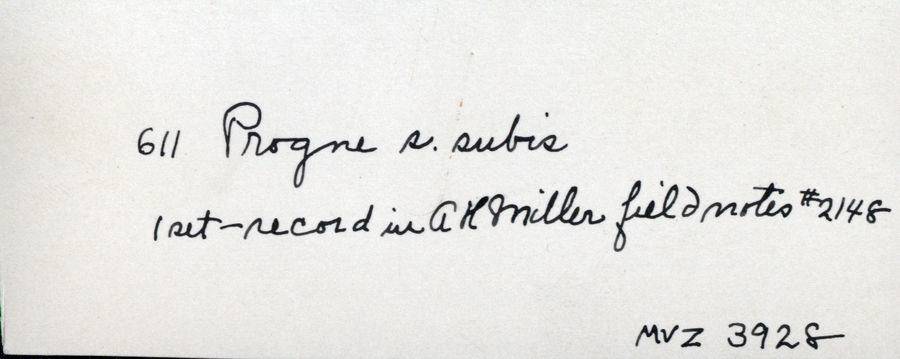 611 Progne s. subis
1 set-record in AH Miller field notes #2148
MVZ 3928